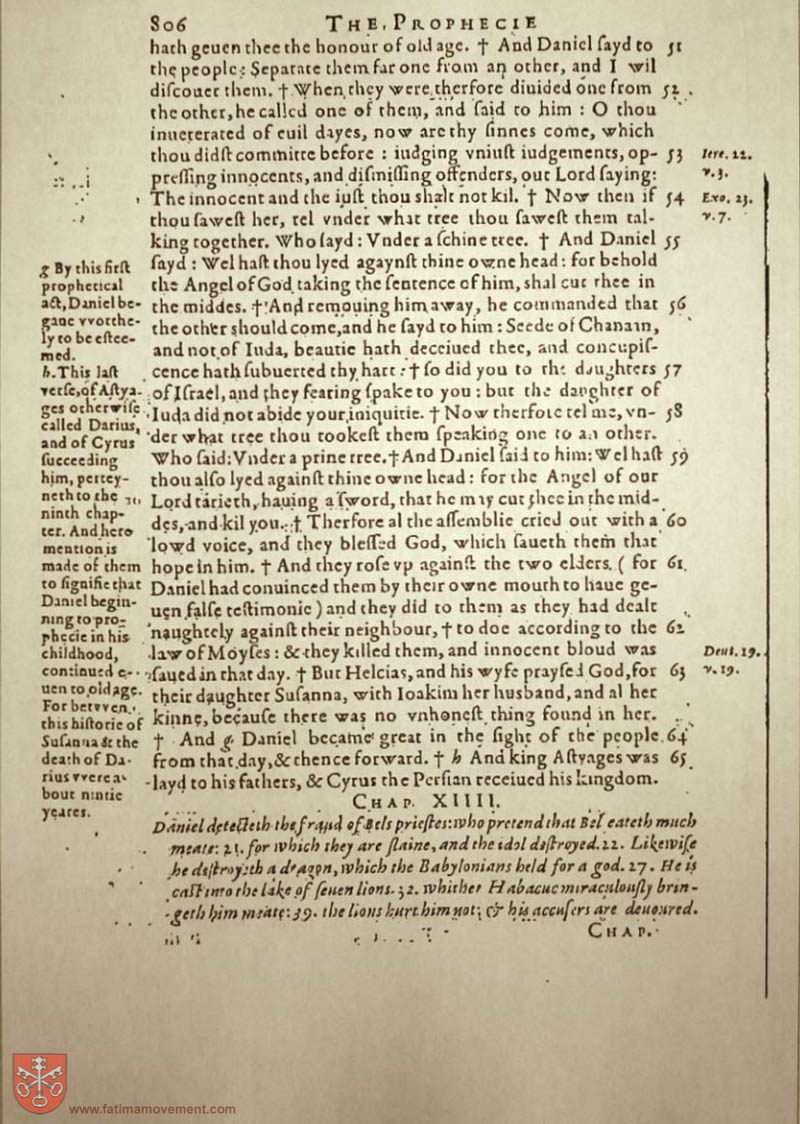 806 THE PROPHECIE
hath geuen thee the honour of old age. † And Daniel ſayd to 51
the people: Separate them far one from an other, and I wil
diſcouer them. † When they were therfore diuided one from 52
the other, he called one of them, and ſaid to him : O thou
inueterated of euil dayes, now are thy ſinnes come, which
thou didſt committe before : iudging vniuſt iudgements, op- 53
preſſing innocents, and diſmiſſing offenders, our Lord ſaying:
The innocent and the iuſt thou shalt not kil. † Now then if 54
thou ſaweſt her, tel vnder what tree thou ſaweſt them tal-
king together. Who ſayd : Vnder a ſchine tree. † And Daniel 55
ſayd : Wel haſt thou lyed agaynſt thine owne head : for behold
the Angel of God taking the ſentence of him, shal cut thee in
the middes. † And remouing him away, he commanded that 56
the other should come, and he ſayd to him : Seede of Chanaan,
and not of Iuda, beautie hath deceiued thee, and concupiſ-
cence hath ſubuerted thy hart : † ſo did you to the daughters 57
of Iſrael, and they fearing ſpake to you : but the daughter of
Iuda did not abide your iniquitie. † Now therfore tel me, vn- 58
der what tree thou tookeſt them ſpeaking one to an other.
Who ſaid: Vnder a prine tree. † And Daniel ſaid to him: Wel haſt 59
thou alſo lyed againſt thine owne head : for the Angel of our
Lord tarieth, hauing a ſword, that he may cut thee in the mid-
des, and kil you. † Therfore al the aſſemblie cried out with a 60
lowd voice, and they bleſſed God, which ſaueth them that
hope in him. † And they roſe vp againſt the two elders. ( for 61
Daniel had conuinced them by their owne mouth to haue ge-
uen falſe teſtimonie ) and they did to them as they had dealt
naughtely againſt their neighbour, † to doe according to the 62
law of Moyſes : & they killed them, and innocent bloud was
ſaued in that day. † But Helcias, and his wyfe prayſed God, for 63
their daughter Suſanna, with Ioakim her husband, and al her
kinne, becauſe there was no vnhoneſt thing found in her.
† And g Daniel became great in the ſight of the people 64
from that day, & thence forward. † h And king Aſtyages was 65
layd to his fathers, & Cyrus the Perſian receiued his kingdom.
CHAP. XIIII.
Daniel detecteth the fraud of Bels prieſtes: who pretend that Bel eateth much
meate: 21. for which they are ſlaine, and the idol deſtroyed. 22. Likewiſe
he deſtroyeth a dragon, which the Babylonians held for a god. 27. He is
caſt into the lake of ſeuen lions. 32. whither Habacuc miraculouſly brin-
geth him meate: 39. the lions hurt him not; & his accuſers are deuoured.
CHAP.
g By this firſt
prophetical
act, Daniel be-
gane vvorthe-
ly to be eſtee-
med.
h. This laſt
verſe, of Aſtya-
ges otherwiſe
called Darius,
and of Cyrus
ſucceeding
him, pertey-
neth to the
ninth chap-
ter. And here
mention is
made of them
to ſignifie that
Daniel begin-
ning to pro-
phecie in his
childhood,
continued e-
uen to old age.
For betvven
this hiſtorie of
Suſanna & the
death of Da-
rius vvere a-
bout nintie
yeares.
Iere. 22.
v. 3.
Exo. 23.
v. 7.
Deut. 19.
v. 19.
www.fatimamovement.com